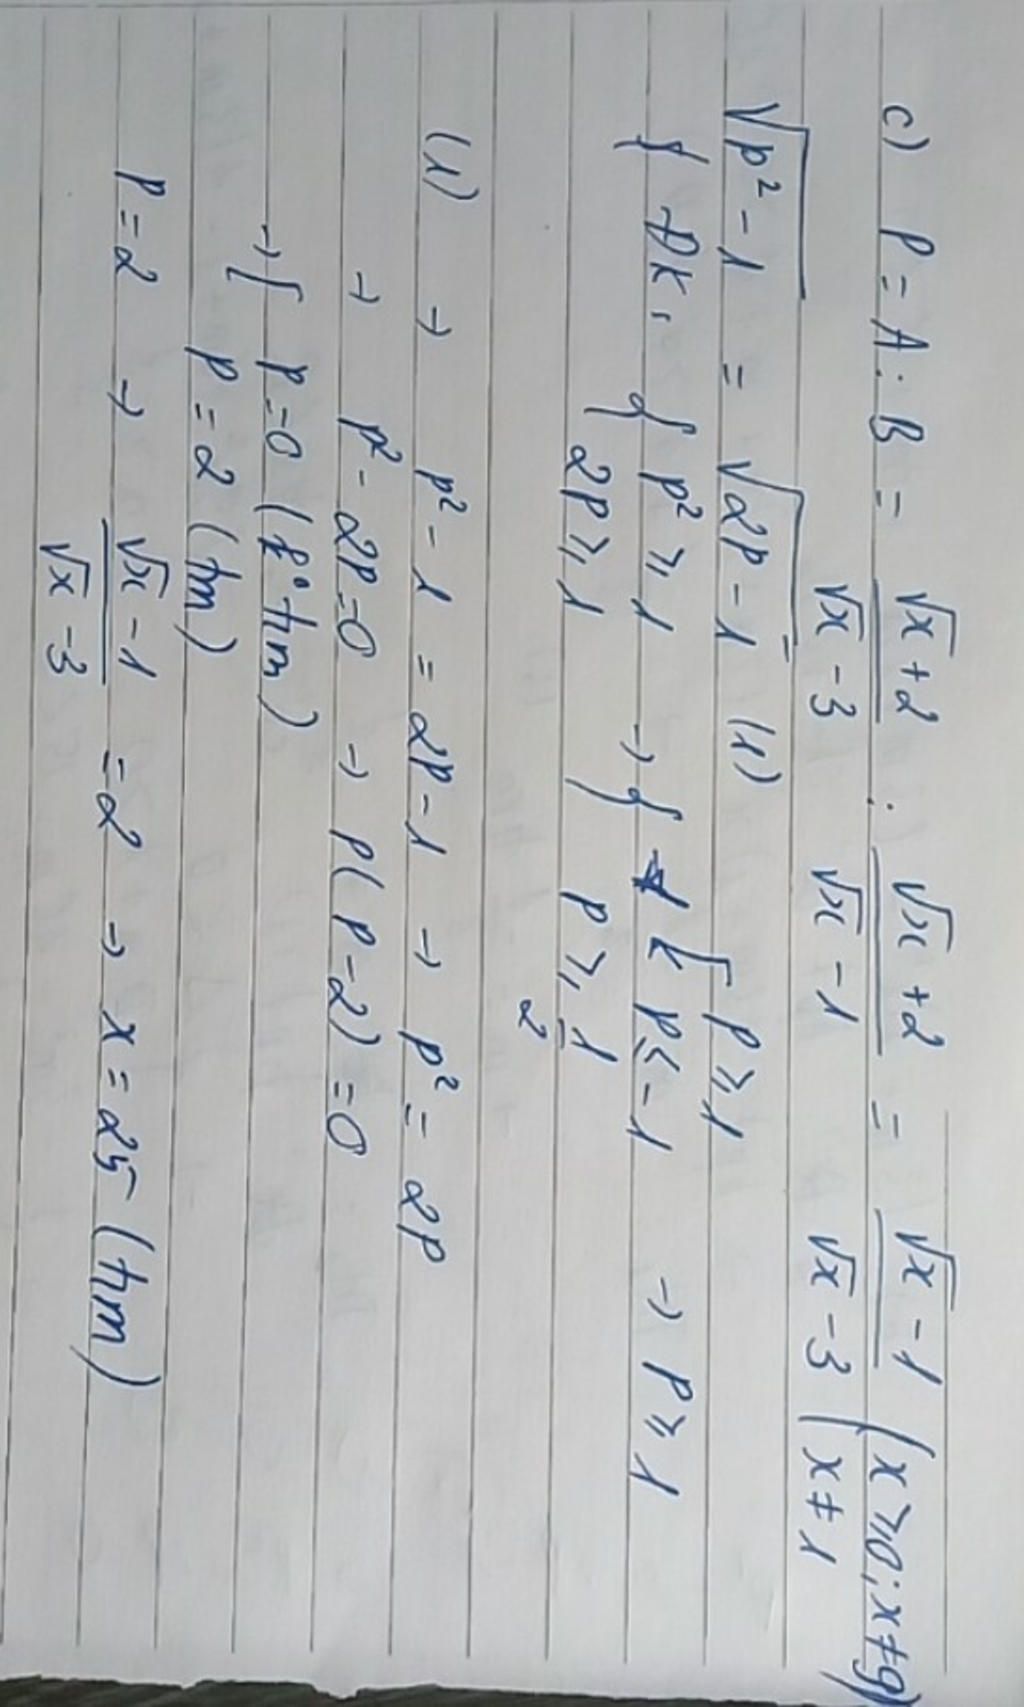 c) P = A : B = (√x + 2)/(√x - 3) : (√x + 2)/(√x - 1) = (√x - 1)/(√x - 3) (x ≥ 0; x ≠ 9; x ≠ 1
√(p² - 1) = √(2P - 1) (1)
ĐK: { p² ≥ 1 ; 2P ≥ 1 → { [ P ≥ 1 ; P ≤ -1 ; P ≥ 1/2 → P ≥ 1
(1) → p² - 1 = 2P - 1 → p² = 2P
→ p² - 2P = 0 → P(P - 2) = 0
→ [ P = 0 (k° tm)
P = 2 (tm)
P = 2 → (√x - 1)/(√x - 3) = 2 → x = 25 (tm)